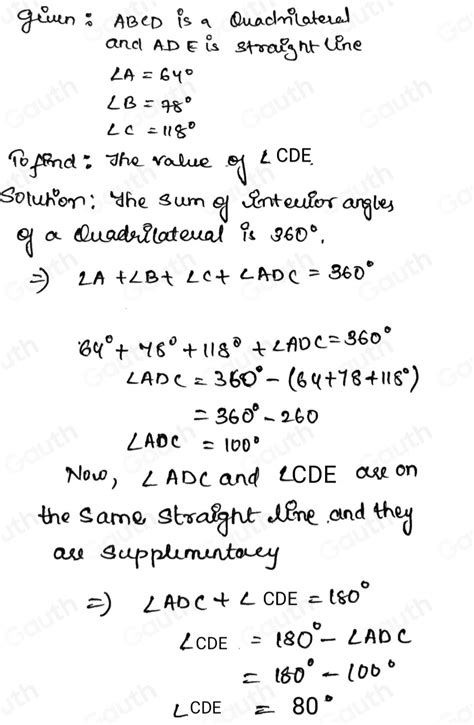 given : ABCD is a Quadrilateral
and ADE is straight line
∠A = 64°
∠B = 78°
∠C = 118°
To find : The value of ∠CDE.
Solution : The sum of interior angles
of a Quadrilateral is 360°.
⇒ ∠A + ∠B + ∠C + ∠ADC = 360°
64° + 78° + 118° + ∠ADC = 360°
∠ADC = 360° - (64+78+118°)
= 360° - 260
∠ADC = 100°
Now, ∠ADC and ∠CDE are on
the same straight line and they
are supplimentarey
⇒ ∠ADC + ∠CDE = 180°
∠CDE = 180° - ∠ADC
= 180° - 100°
∠CDE = 80°